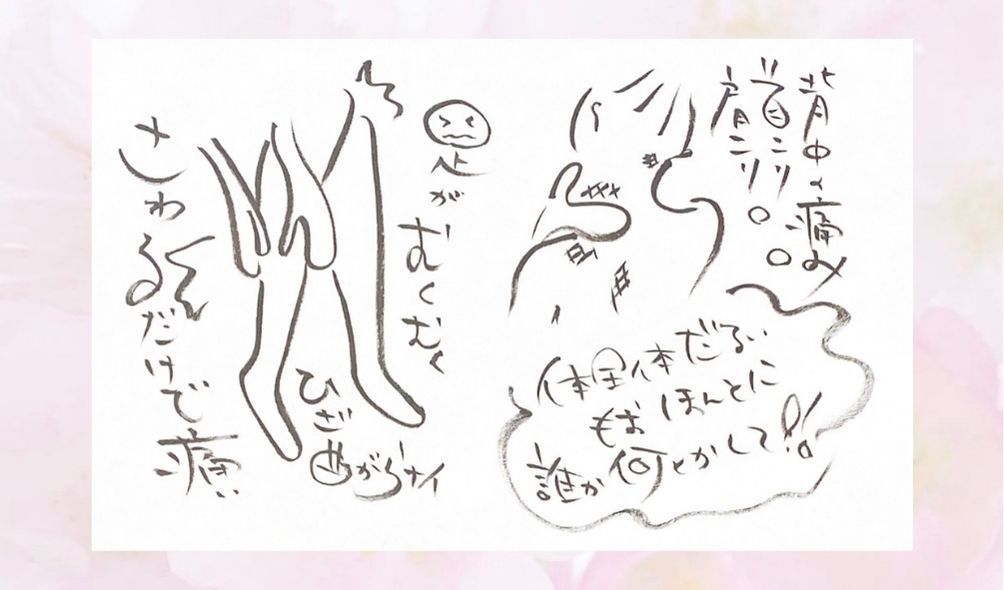 背中の痛み
首コリ。
肩コリ。
足がむくむく
ひざ
曲がらナイ
さわるだけで痛い
体全体だるい
もおほんとに
誰か何とかして!!